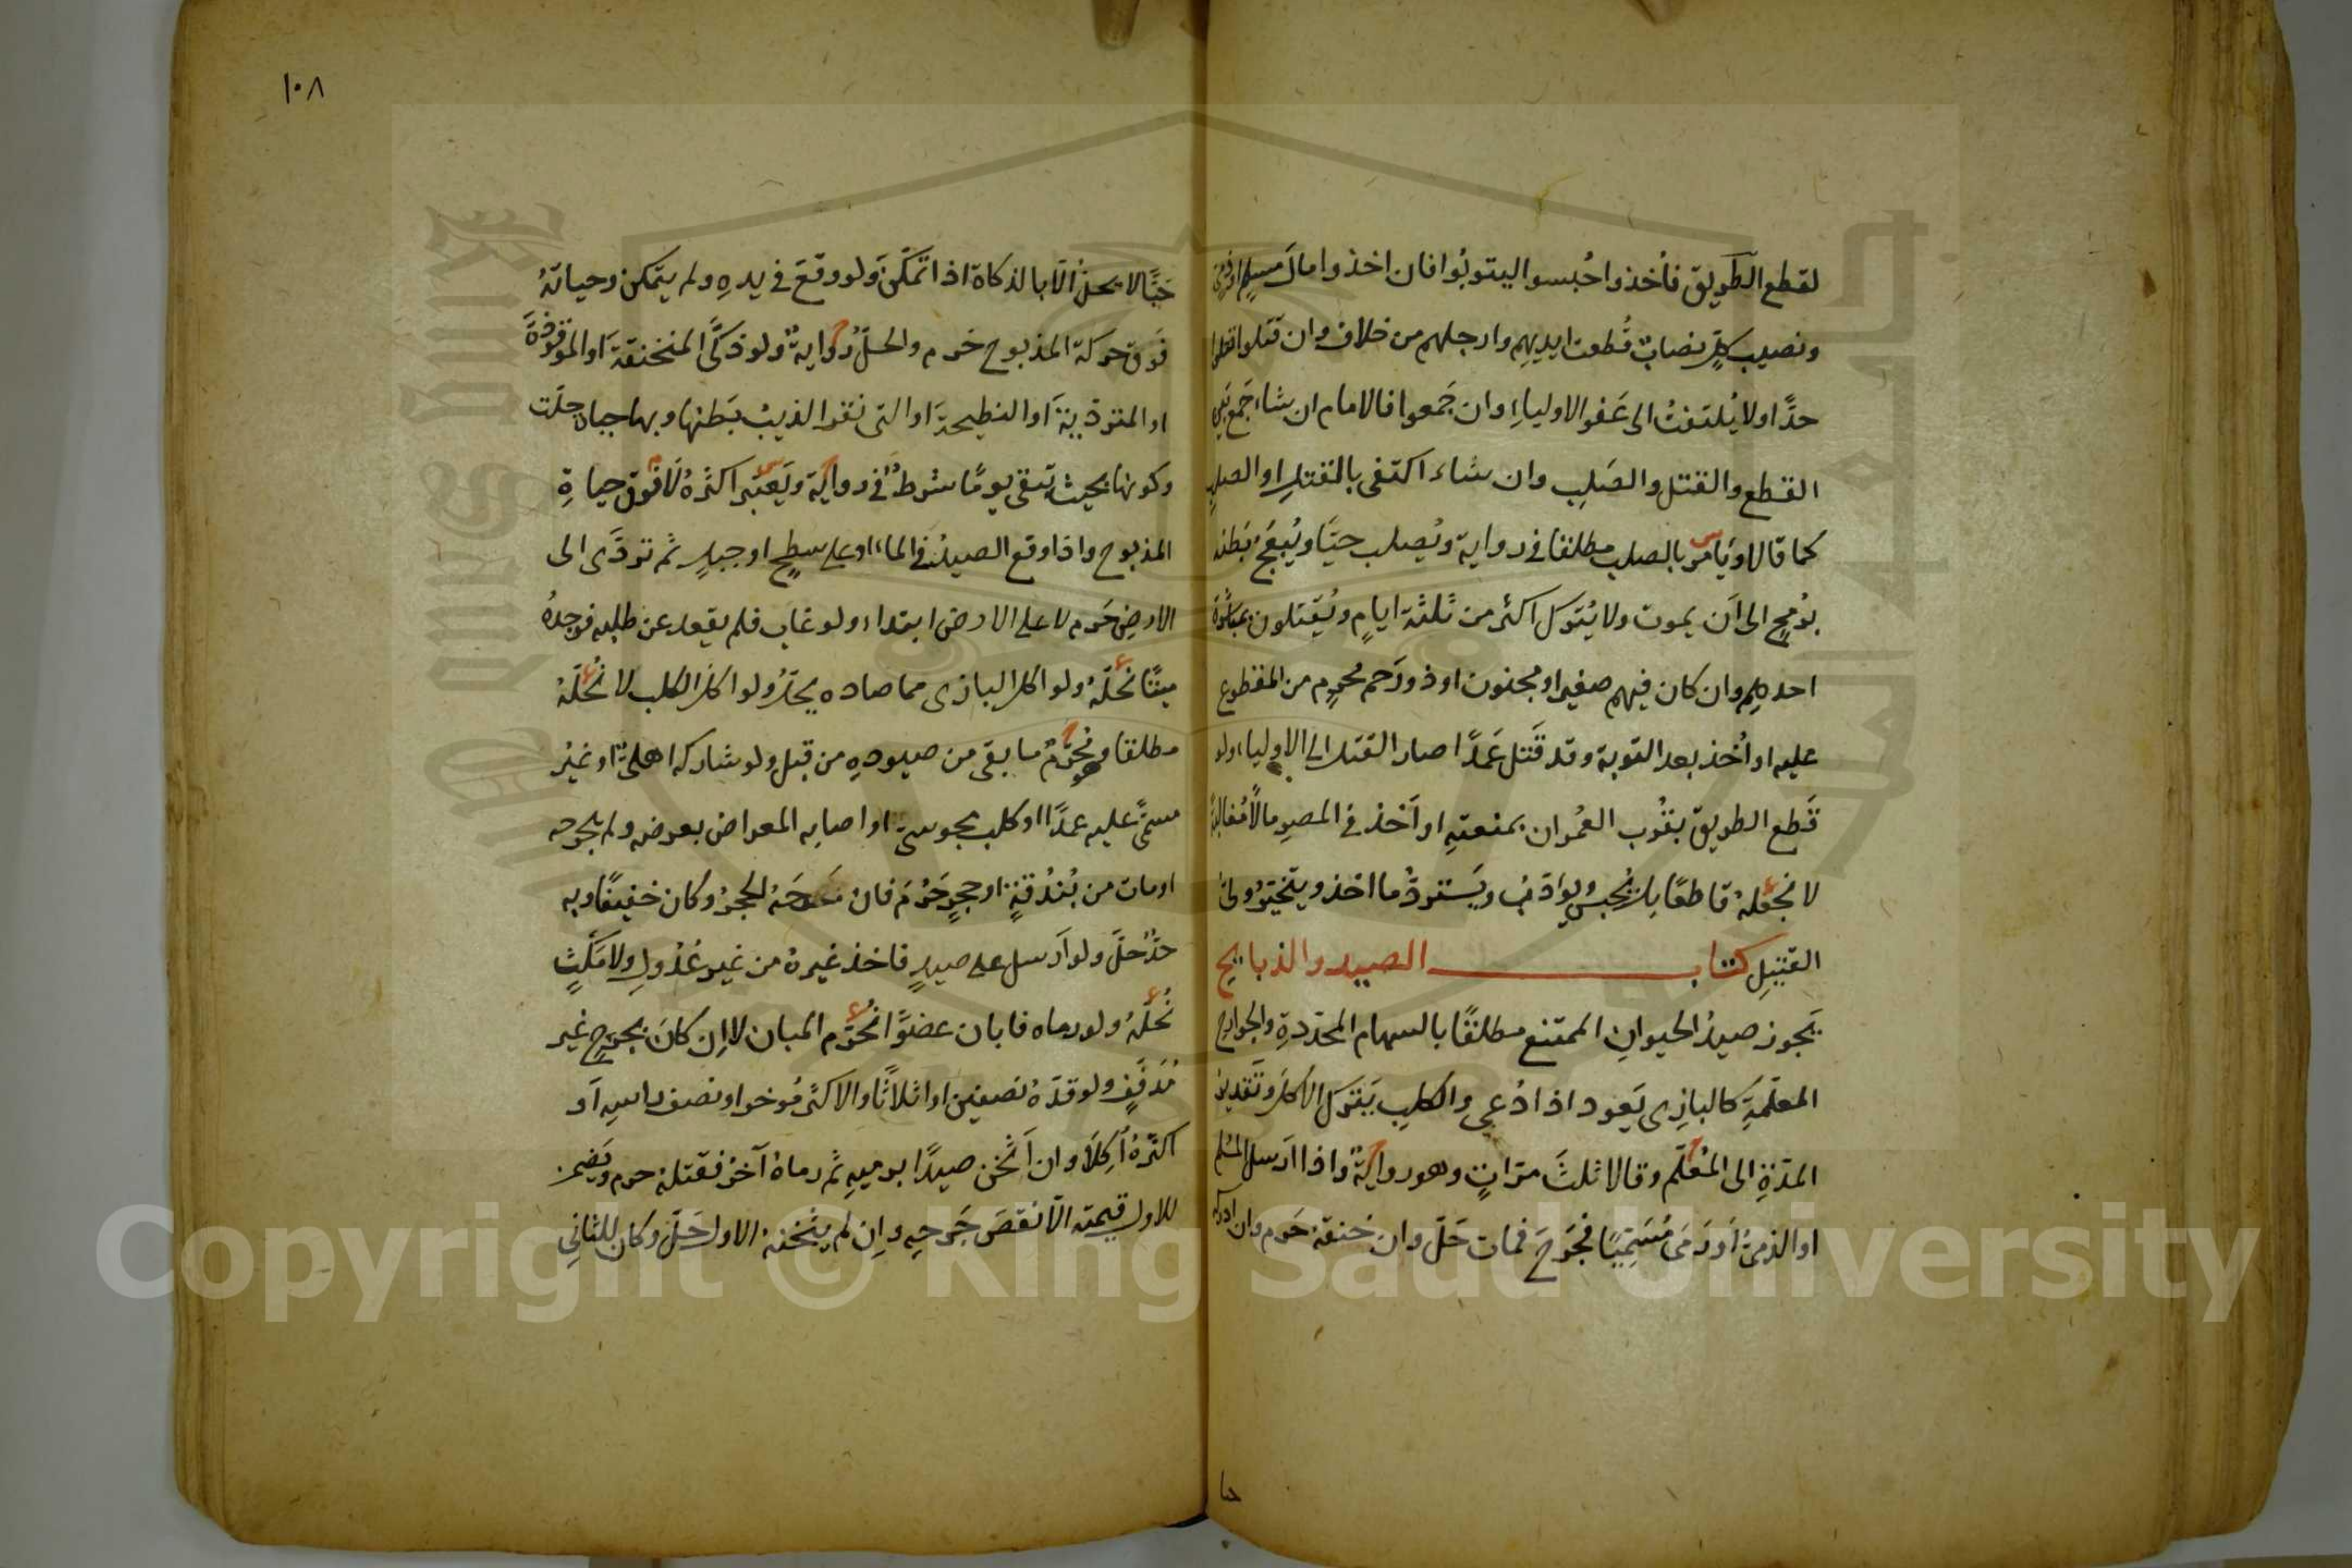 لقطع الطريق فأُخذوا حُبسوا ليتوبُوا فان اخذوا مالَ مسلمٍ او ذمي
ونصيب كلٍّ نصابٌ قُطعت ايديهِم وارجلهم من خلاف وان قَتلوا قتلوا
حدًّا ولا يُلتفتُ الى عَفو الاولياءِ وان جَمعوا فالامام ان شاء جَمع بين
القطع والقتل والصَلبِ وان شاء اكتفى بالقتلِ او الصلبِ
كما قالا ويَأمر بالصلب مطلقا في رواية ويُصلب حيَّا ويُبعَجُ بَطنه
برُمحٍ الى اَن يموت ولا يُترك اكثر من ثلثة ايامٍ ويُقتلون بمباشَرة
احدهِم وان كان فيهم صغير او مجنون او ذو رَحم محرمٍ من المقطوع
عليه او اُخذ بعد التوبة وقد قَتل عَمدًا صار القتل الى الاولياء ولو
قَطع الطريق بقُرب العُمران بمنعتهِ او اَخذ في المصرِ مالًا مُغالبةً
لا نجعلهُ قاطعًا بل يُحبسُ ويؤدَّبُ ويَستردُّ ما اخذ ويتخيَّرُ ولىُّ
القتيلِ كتاب الصيد والذبايح
يَجوز صيدُ الحيوانِ الممتنع مطلقًا بالسهام المحدّدةِ والجوارحِ
المعلَّمةِ كالبازِى يَعود اذا دُعى والكلبِ يَترك الاكلَ وتَقدير
المدّةِ الى المُعلّم وقالا ثلثَ مرّاتٍ وهو روايةٌ واذا ارسل المُسلم
او الذمىُّ اَو رَمَى مُسَمِّيًا فجَرحَ فمات حَلّ وان خنقهُ حَرم وان ادركه
حيا
١٠٨
حَيًّا لا يحلُّ اِلّا بالذكاة اذا تمكّنَ ولو وقعَ في يدهِ ولم يتمكن وحياتهُ
فَوق حركة المذبوح حَرم والحلُّ روايةٌ ولو ذكَّى المنخنقةَ او الموقوذةَ
او المتردّيةَ او النطيحةَ او التى بَقر الذيبُ بَطنها وبها حياة حلّت
وكونها بحيث تبقى يومًا شرطٌ في رواية ويَعتبر اكثرهُ لا فوق حياةِ
المذبوح واذا وقع الصيدُ في الماء او على سطحٍ او جبلٍ ثم تردّى الى
الارضِ حَرم لا على الارض ابتداء ولو غاب فلم يقعد عن طلبه فوجدهُ
ميتًا نُحلّهُ ولو اكل البازى مما صاده يحلّ ولو اكل الكلب لا نُحلّهُ
مطلقا ونُحرّمُ ما بقى من صيودهِ من قبل ولو شاركه اهلىٌّ او غيرُ
مسمًّى عليه عمدًا او كلب مجوسىّ او اصابه المعراض بعرضه ولم يجرحه
او مات من بُندُقةٍ او حجرٍ حَرُمَ فان جَرحَهُ الحجرُ وكان خفيفًا وبه
حدٌّ حلّ ولو اَرسل على صيدٍ فاخذ غيرهُ من غير عُدولٍ ولا مَكْثٍ
نُحلّهُ ولو رماه فابان عضوًا نُحرّم المبان لا اِن كانَ بجرحٍ غير
مُدَفِّفٍ ولو قدّهُ نصفين او اثلاثًا والاكثرُ مُؤخر او نصف راسهِ اَو
اكثرهُ اُكِلَا وان اَثخن صيدًا برميهِ ثم رماهُ آخرُ فقتله حرم ويَضمن
للاول قيمته الّا نقصَ جَرحهِ واِن لم يثخنه الاول حَلّ وكان للثانى
Copyright © King Saud University